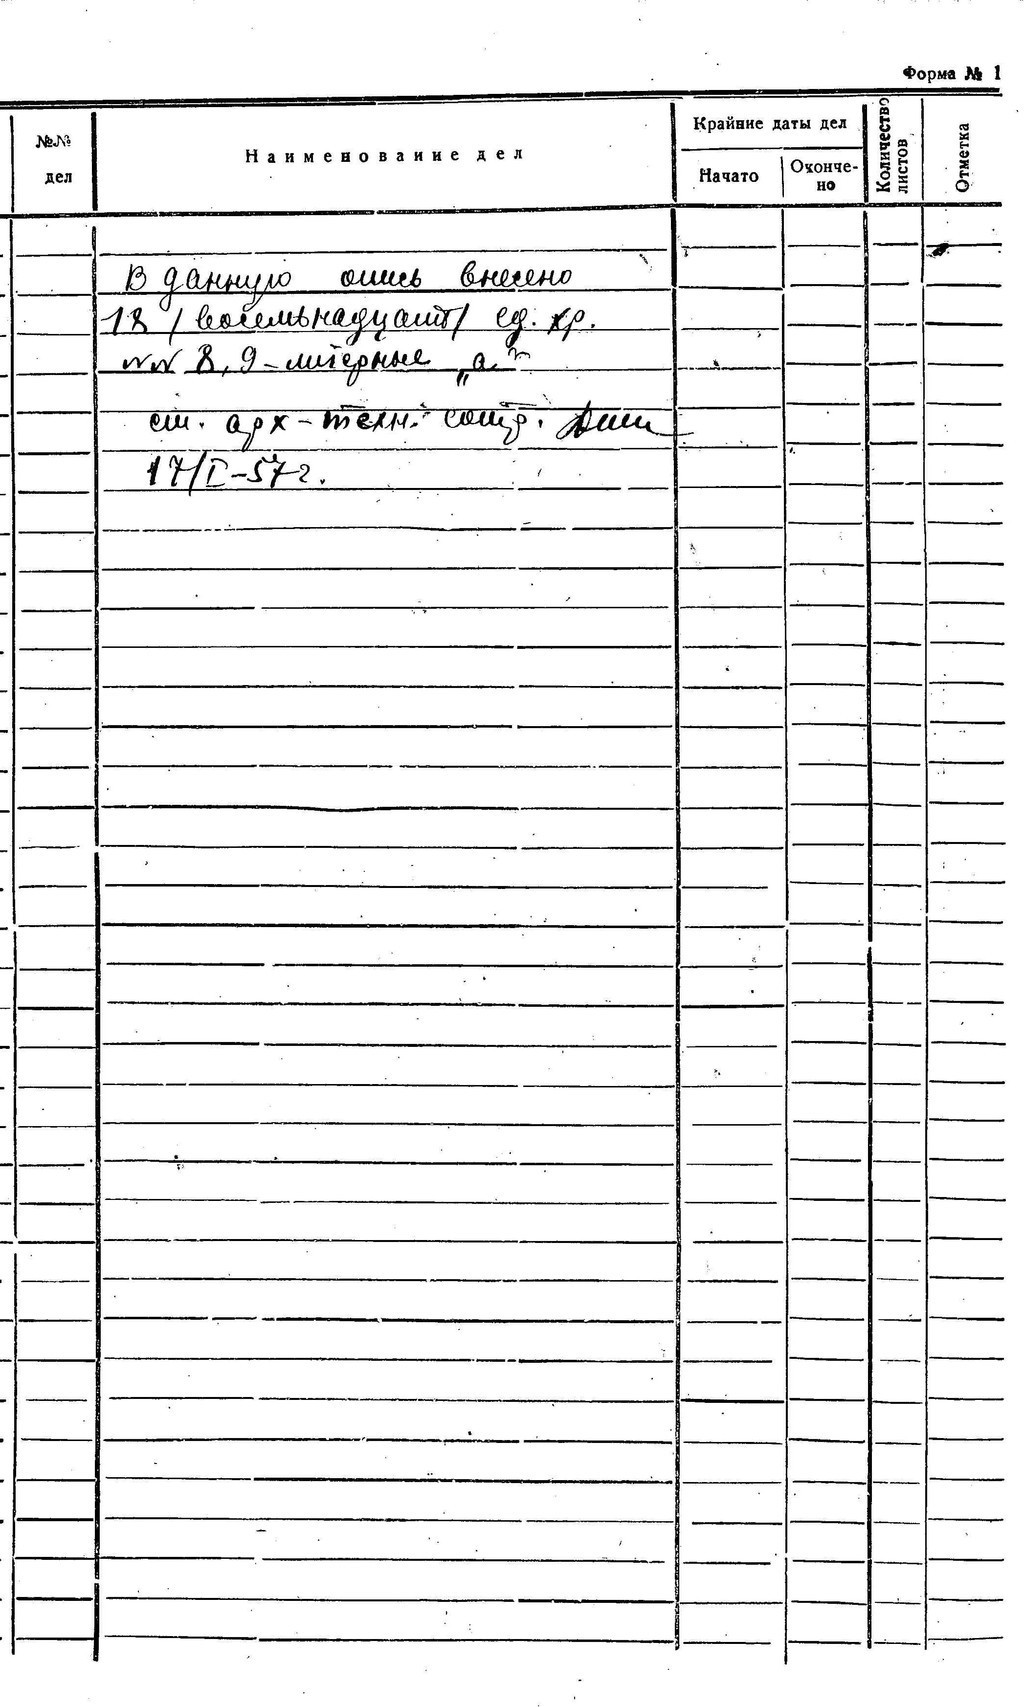 Форма № 1
№№ дел
Наименование дел
Крайние даты дел
Начато
Окончено
Количество листов
Отметка
В данную опись внесено
18 /восемьнадцать/ ед. хр.
№№ 8, 9 - литерные „а."
ст. арх-техн. сотр.
17/I-57 г.